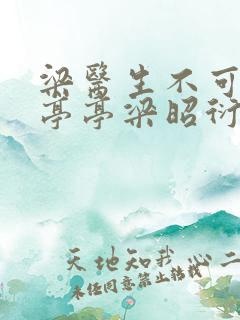 梁醫生不可
亭亭梁昭衍
天地知我心二
未任同意禁止转载